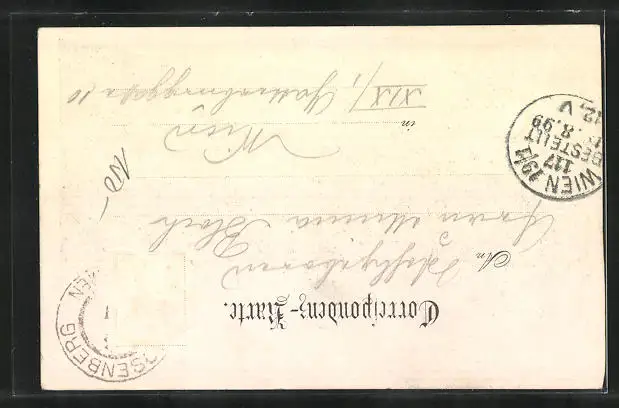 Correspondenz-Karte.
An Hochgeboren
Frau Minna Bloch
in Wien
XIX/1
10
WIEN 19/1
117
BESTELLT
8.99
12.V
SENBERG